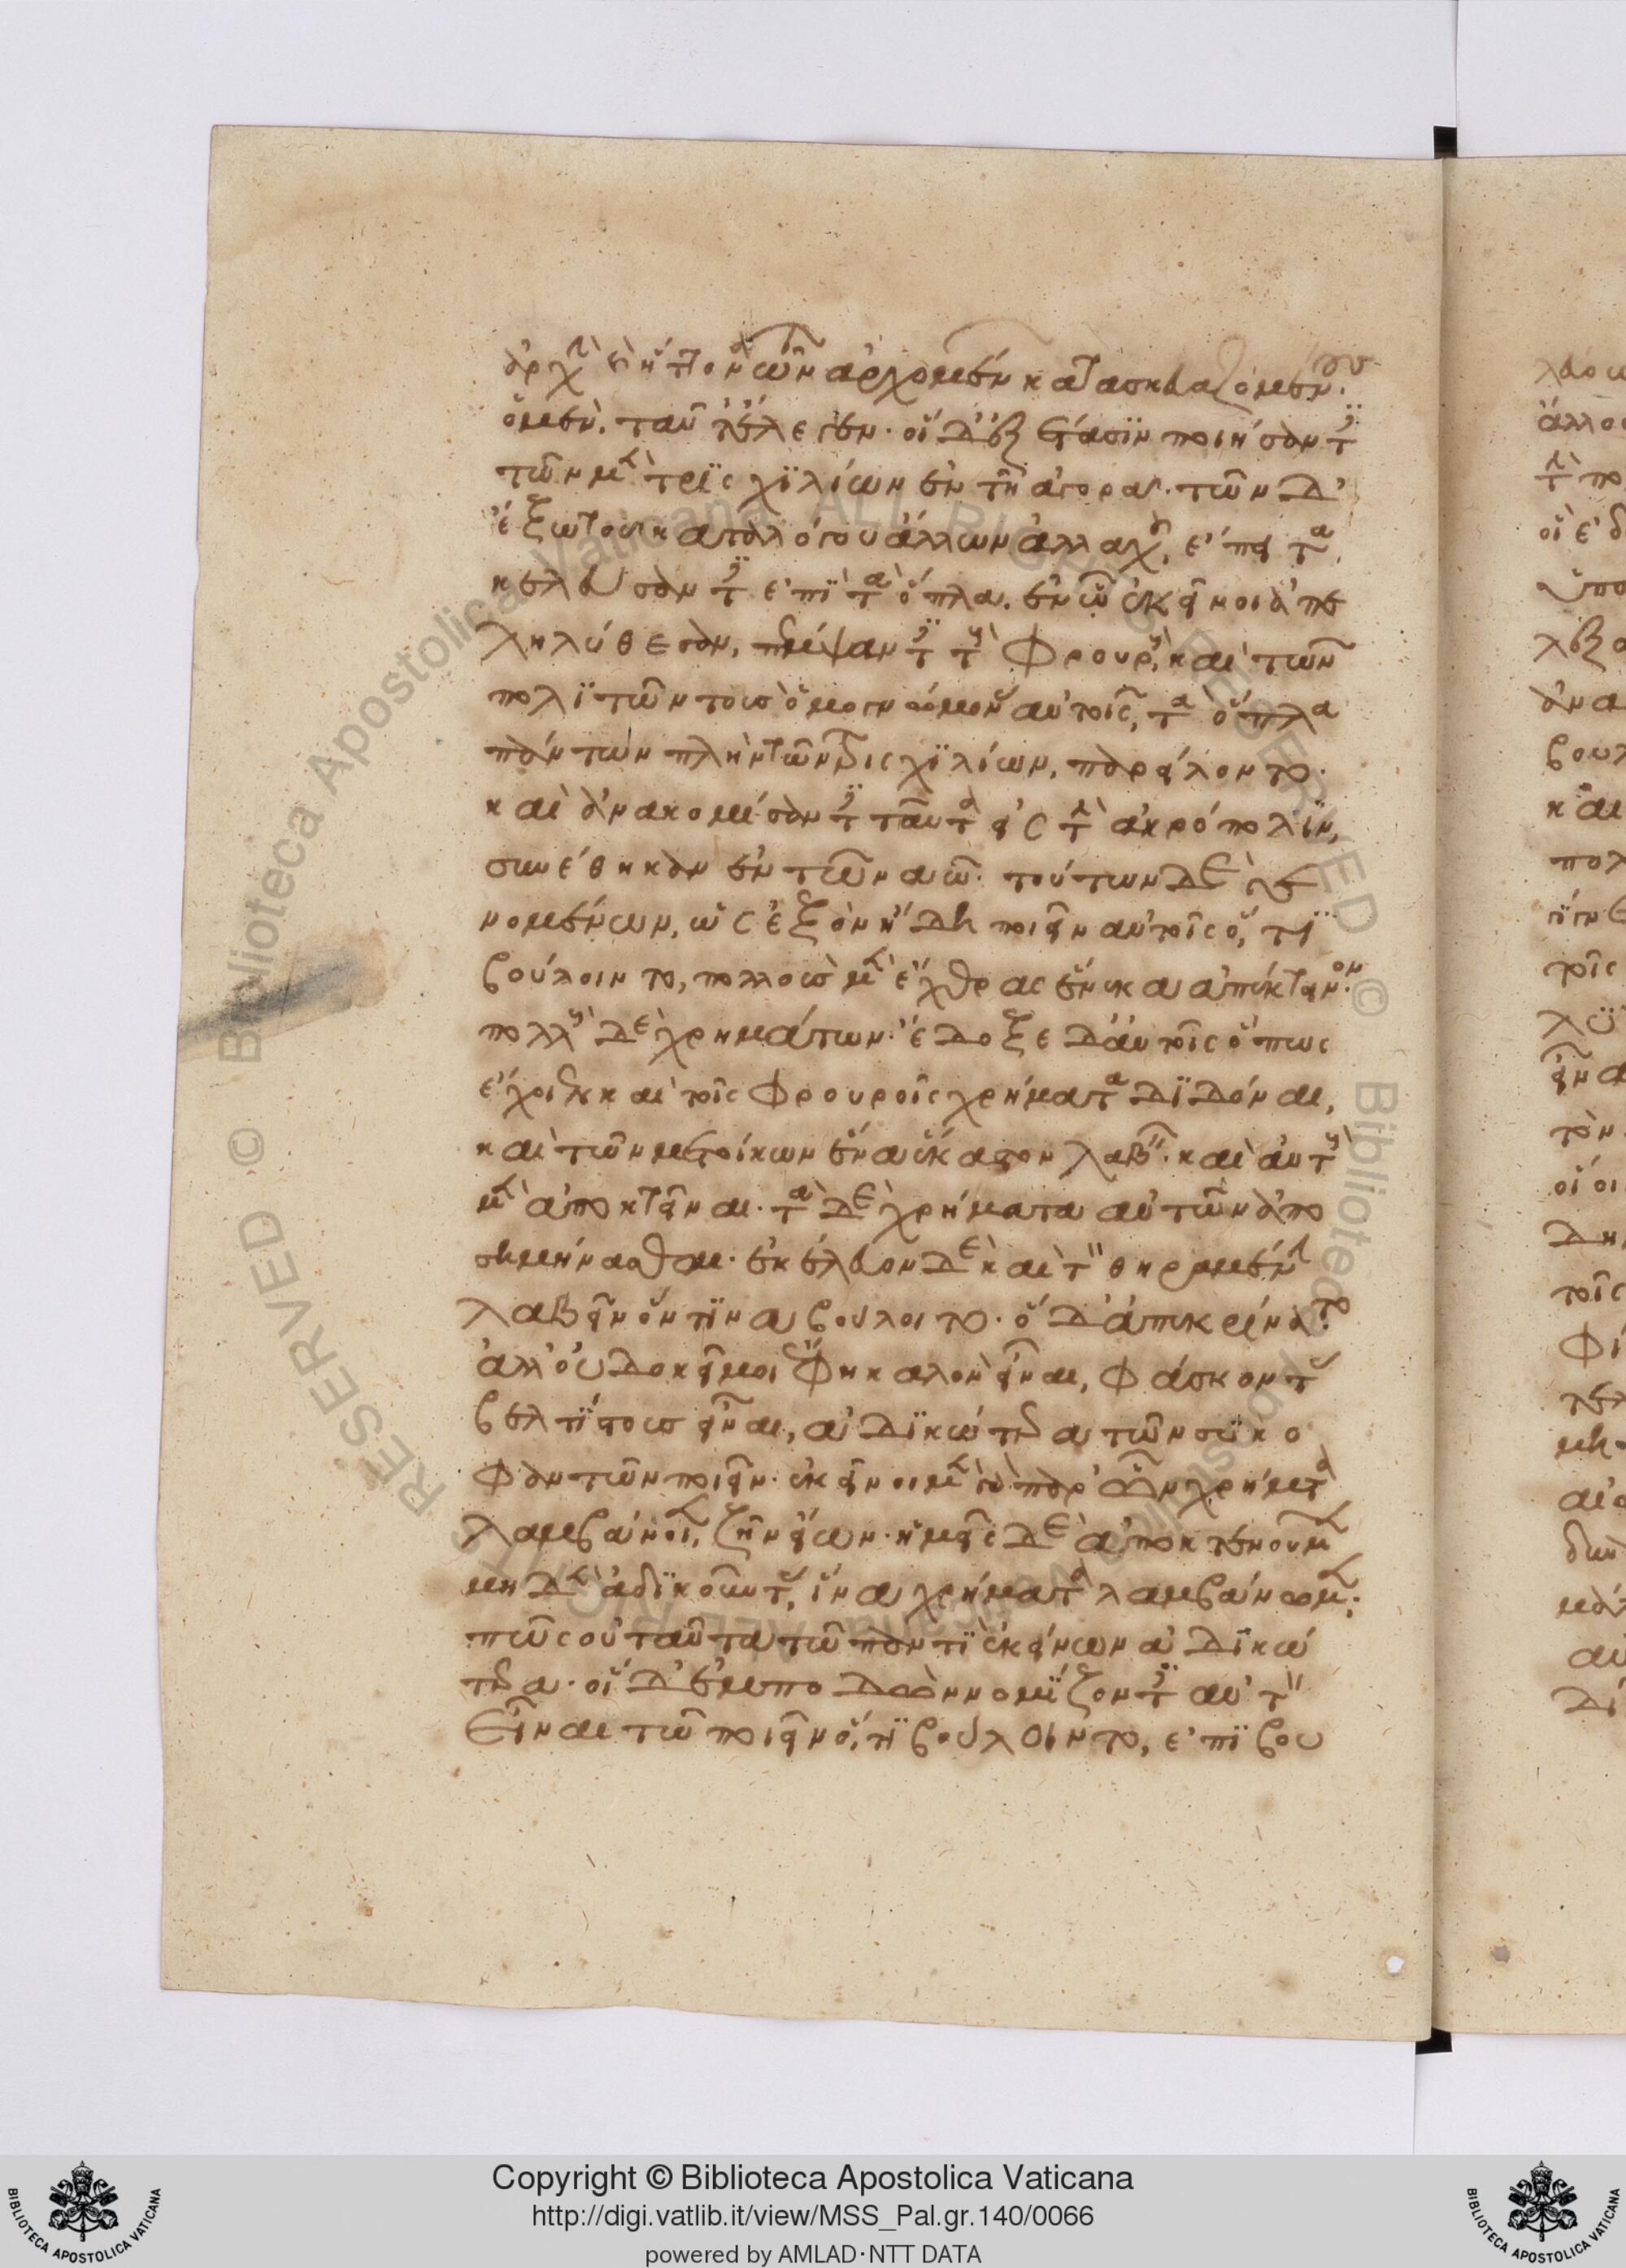 ἀρχὴν καὶ ἥττονα τῶν ἀρχομένων κατασκευαζομένους.
ὁ μὲν ταῦτ' ἔλεγεν. οἱ δ' ἐξέτασιν ποιήσαντες
τῶν μὲν τρισχιλίων ἐν τῆ ἀγορᾶ· τῶν δ'
ἔξω τοῦ καταλόγου ἄλλων ἀλλαχοῦ, ἔπειτα
κελεύσαντες ἐπὶ τὰ ὅπλα. ἐν ᾧ ἐκεῖνοι ἀπε
ληλύθεσαν, πέμψαντες τοὺς φρουροὺς, καὶ τῶν
πολιτῶν τοὺς ὁμογνώμονας αὐτοῖς, τὰ ὅπλα
πάντων πλὴν τῶν τρισχιλίων, παρείλοντο.
καὶ ἀνακομίσαντες ταῦτα εἰς τὴν ἀκρόπολιν,
συνέθηκαν ἐν τῶ ναῶ. τούτων δὲ γε
νομένων, ὡς ἐξὸν ἤδη ποιεῖν αὐτοῖς ὅ, τι
βούλοιντο, πολλοὺς μὲν ἔχθρας ἕνεκα ἀπέκτεινον.
πολλοὺς δὲ χρημάτων. ἔδοξε δ' αὐτοῖς ὅπως
ἔχοιεν καὶ τοῖς φρουροῖς χρήματα διδόναι,
καὶ τῶν μετοίκων ἕνα ἕκαστον λαβεῖν. καὶ αὐτοὺς
μὲν ἀποκτεῖναι. τὰ δὲ χρήματα αὐτῶν ἀπο
σημήνασθαι. ἐκέλευον δὲ καὶ τὸν θηραμένην
λαβεῖν ὅντινα βούλοιτο. ὁ δ' ἀπεκρίνατο.
ἀλλ' οὐ δοκεῖ μοι ἔφη καλὸν εἶναι, φάσκοντας
βελτίστους εἶναι, ἀδικώτερα τῶν συκο
φαντῶν ποιεῖν. ἐκεῖνοι μὲν γὰρ παρ' ὧν χρήματα
λαμβάνοιεν, ζῆν εἴων. ἡμεῖς δὲ ἀποκτενοῦμεν
μηδὲν ἀδικοῦντας, ἵνα χρήματα λαμβάνωμεν;
πῶς οὐ ταῦτα τῶ παντὶ ἐκείνων ἀδικώ
τερα. οἱ δ' ἐμποδὼν νομίζοντες αὐτὸν
εἶναι τῶ ποιεῖν ὅ, τι βούλοιντο, ἐπιβου
Copyright © Biblioteca Apostolica Vaticana
http://digi.vatlib.it/view/MSS_Pal.gr.140/0066
powered by AMLAD·NTT DATA